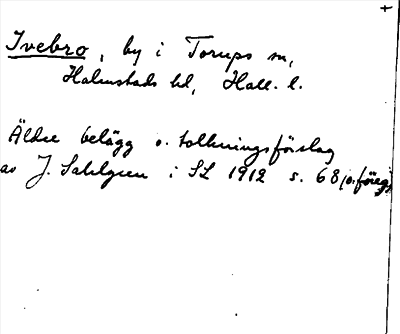 Ivebro, by i Torups sn,
Halmstads hd, Hall. l.
Äldre belägg o. tolkningsförslag
av J. Sahlgren i SL 1912 s. 68 (o. föreg.)